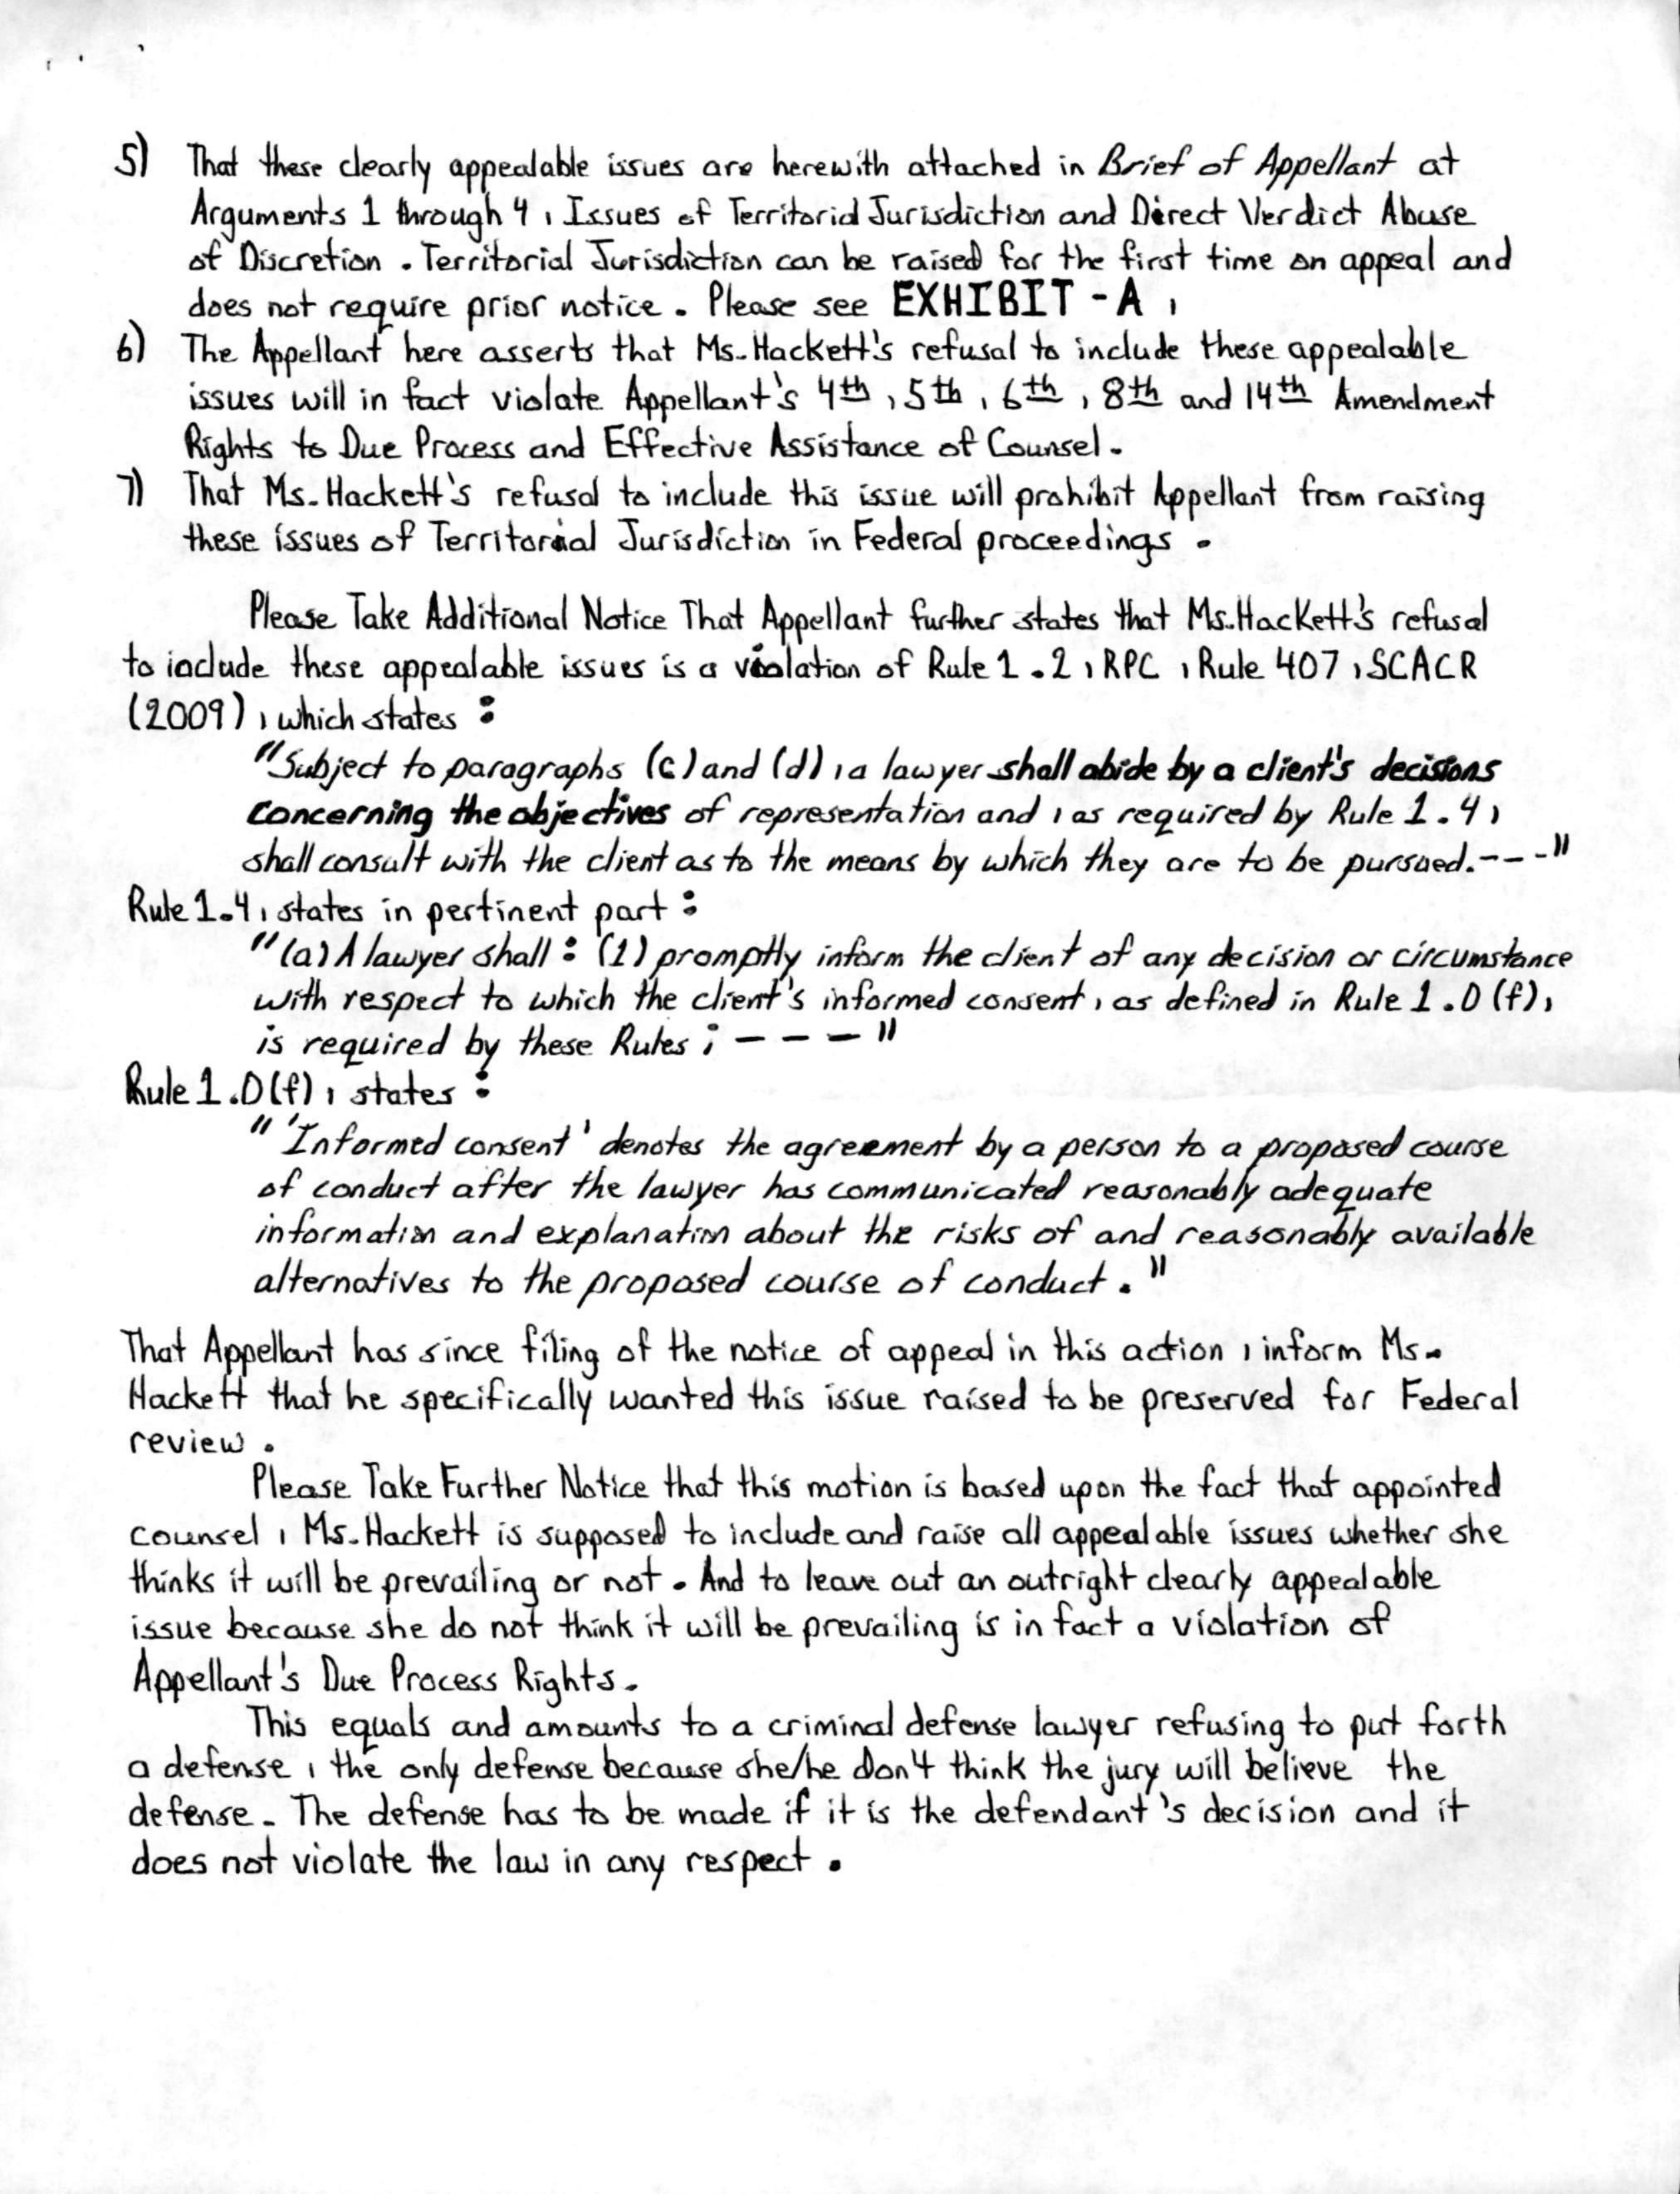 5) That these clearly appealable issues are herewith attached in Brief of Appellant at
Arguments 1 through 4, Issues of Territorial Jurisdiction and Direct Verdict Abuse
of Discretion. Territorial Jurisdiction can be raised for the first time on appeal and
does not require prior notice. Please see EXHIBIT - A,
6) The Appellant here asserts that Ms. Hackett's refusal to include these appealable
issues will in fact violate Appellant's 4th, 5th, 6th, 8th and 14th Amendment
Rights to Due Process and Effective Assistance of Counsel.
7) That Ms. Hackett's refusal to include this issue will prohibit Appellant from raising
these issues of Territorial Jurisdiction in Federal proceedings.
Please Take Additional Notice That Appellant further states that Ms. Hackett's refusal
to include these appealable issues is a violation of Rule 1.2, RPC, Rule 407, SCACR
(2009), which states:
"Subject to paragraphs (c) and (d), a lawyer shall abide by a client's decisions
concerning the objectives of representation and, as required by Rule 1.4,
shall consult with the client as to the means by which they are to be pursued.---"
Rule 1.4, states in pertinent part:
"(a) A lawyer shall: (1) promptly inform the client of any decision or circumstance
with respect to which the client's informed consent, as defined in Rule 1.0(f),
is required by these Rules; - - - "
Rule 1.0(f), states:
" 'Informed consent' denotes the agreement by a person to a proposed course
of conduct after the lawyer has communicated reasonably adequate
information and explanation about the risks of and reasonably available
alternatives to the proposed course of conduct."
That Appellant has since filing of the notice of appeal in this action, inform Ms.
Hackett that he specifically wanted this issue raised to be preserved for Federal
review.
Please Take Further Notice that this motion is based upon the fact that appointed
counsel, Ms. Hackett is supposed to include and raise all appealable issues whether she
thinks it will be prevailing or not. And to leave out an outright clearly appealable
issue because she do not think it will be prevailing is in fact a violation of
Appellant's Due Process Rights.
This equals and amounts to a criminal defense lawyer refusing to put forth
a defense, the only defense because she/he don't think the jury will believe the
defense. The defense has to be made if it is the defendant's decision and it
does not violate the law in any respect.